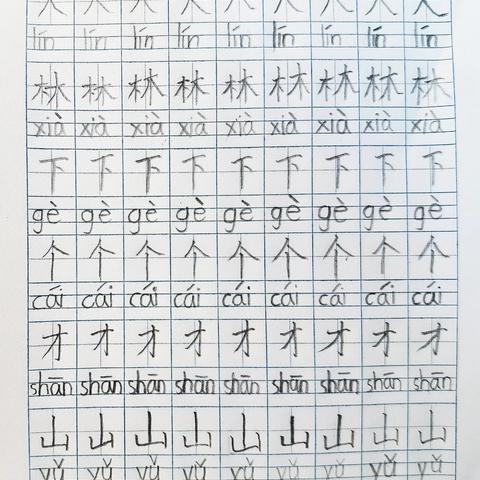 lín lín lín lín lín lín lín lín lín
林 林 林 林 林 林 林 林 林
xià xià xià xià xià xià xià xià xià
下 下 下 下 下 下 下 下 下
gè gè gè gè gè gè gè gè gè
个 个 个 个 个 个 个 个 个
cái cái cái cái cái cái cái cái cái
才 才 才 才 才 才 才 才 才
shān shān shān shān shān shān shān shān shān
山 山 山 山 山 山 山 山 山
yǔ yǔ yǔ yǔ yǔ yǔ yǔ yǔ yǔ